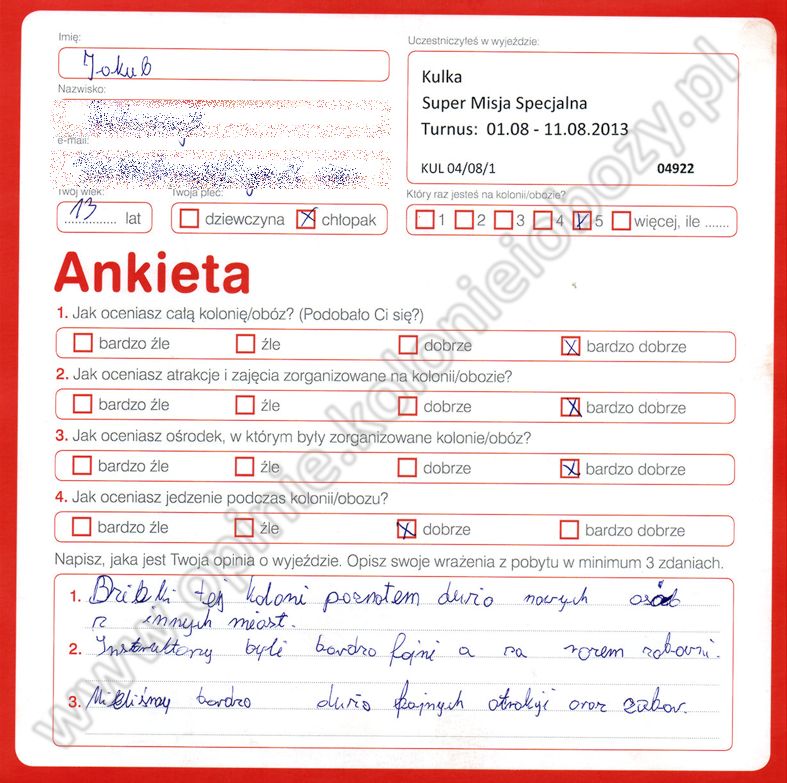 Imię:
Jakub
Uczestniczyłeś w wyjeździe:
Kulka
Super Misja Specjalna
Turnus: 01.08 - 11.08.2013
KUL 04/08/1 04922
Nazwisko:
e-mail:
Twój wiek: Twoja płeć:
13 lat dziewczyna chłopak
Który raz jesteś na kolonii/obozie?
1 2 3 4 5 więcej, ile .......
Ankieta
1. Jak oceniasz całą kolonię/obóz? (Podobało Ci się?)
bardzo źle źle dobrze bardzo dobrze
2. Jak oceniasz atrakcje i zajęcia zorganizowane na kolonii/obozie?
bardzo źle źle dobrze bardzo dobrze
3. Jak oceniasz ośrodek, w którym były zorganizowane kolonie/obóz?
bardzo źle źle dobrze bardzo dobrze
4. Jak oceniasz jedzenie podczas kolonii/obozu?
bardzo źle źle dobrze bardzo dobrze
Napisz, jaka jest Twoja opinia o wyjeździe. Opisz swoje wrażenia z pobytu w minimum 3 zdaniach.
1. tej koloni poznałem dużo nowych osób
z innych miast.
2. Instruktorzy byli bardzo fajni a za razem zabawni.
3. Mieliśmy bardzo dużo fajnych atrakcji oraz zabaw.
www.opinie.kolonieiobozy.pl